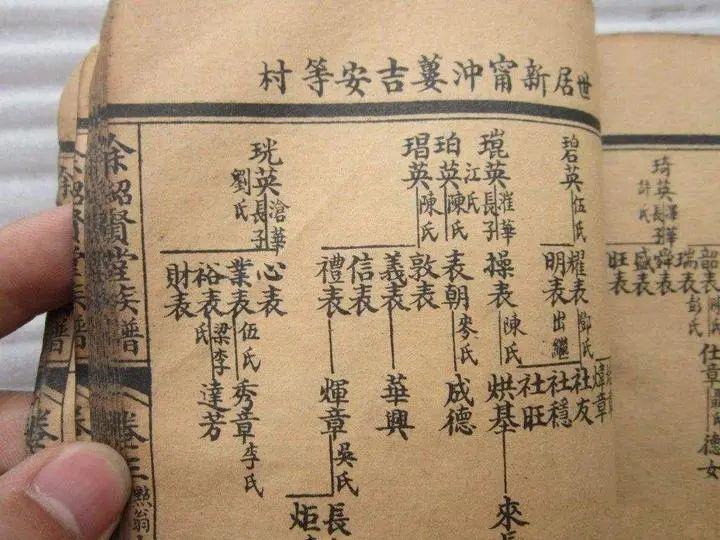 世居新甯沖蔞吉安等村
碧英 伍氏
琨英 漼華長子 江氏
珀英 陳氏
琩英 陳氏
珖英 滄華長子 劉氏
耀表 鄧氏
明表 出繼
操表 陳氏
表朝 麥氏
敦表
義表
信表
禮表
心表
業表 伍氏
裕表 梁李氏
財表
社友
社穩
社旺
烘基
成德
華興
煇章 吳氏
秀章 李氏
達芳
來長
長
炬
余紹賢堂族譜
卷三
點翁
琦英 長子 許氏
韶表
瑞表 彭氏
舜表
盛表
旺表
仕章
德女